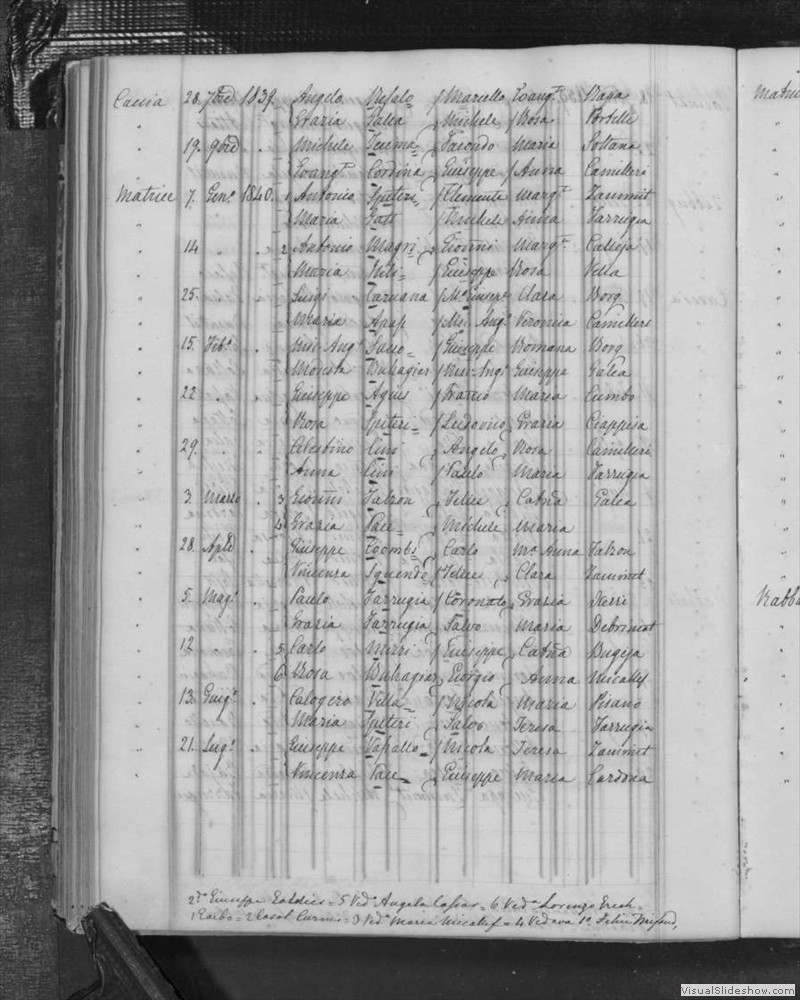 Caccia 28. 7bre 1839. Angelo Refalo / Marcello Evangta Raga
" Grazia Galea Michele / Rosa Portelli
" 19. 9bre " " Michele Tecuma Facondo Maria Soltana
" Evangta Cordina Giuseppe / Anna Camilleri
Matrice 7. Genº 1840. 1 Antonio Spiteri / Clemente Margta Zammit
" Maria Satt / Michele Anna Farrugia
" 14 " " 2 Antonio Magri Gionni Margta Calleja
" Maria / Giuseppe Rosa Vella
" 25. " " Luigi Caruana / Mº Giusepe Clara Borg
" Maria Apap / Mic. Angº Veronica Camilleri
" 15. Febº " Mic. Angº / Giuseppe Romana Borg
" Modesta Buhagiar / Mic. Angº Giuseppa Galea
" 22 " " Giuseppe Agius / Franco Maria Cumbo
" Rosa Spiteri / Ludovico Grazia Ciappisa
" 29. " " Celestino Cini Angelo Rosa Camilleri
" Anna Cini / Paulo Maria Farrugia
" 3. Marzo " 3 Gionni Falzon / Felice Catna Galea
" 4 Grazia Pace Michele Maria
" 28. Aple " Giuseppe Coombi Carlo Mª Anna Falzon
" Vincenza / Felice Clara Zammit
" 5. Magº " Paulo Farrugia / Coronato Grazia Xerri
" Grazia Farrugia Salvo Maria Debrincat
" 12 " " 5 Carlo Mizzi / Giuseppe Catna Bugeja
" 6 Rosa Buhagiar Giorgio Anna Micallef
" 13. Giugº " Calogero Villa / Nicola Maria Pisano
" Maria Spiteri Salvo Teresa Farrugia
" 21. Lugº " Giuseppe Vapallo / Nicola Teresa Zammit
" Vincenza Pace Giuseppe Maria Cardona
2da Giuseppe = 5 Vedº Angela = 6 Veda Lorenzo
1 = 2 Casal Curmi = 3 Vedº Maria Micallef = 4 Vedova 1º Felice
Matri
Rabb
VisualSlideshow.com